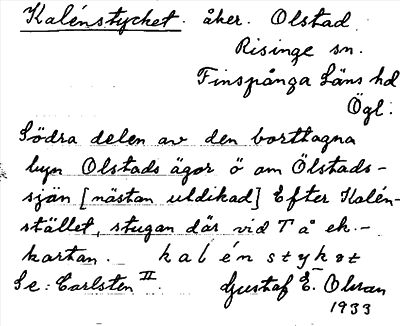 Kalénstycket. åker. Olstad
Risinge sn.
Finspånga Läns hd
Ögl.
Södra delen av den borttagna
byn Olstads ägor ö om Ölstads-
sjön [nästan utdikad] Efter Kalén-
stället, stugan där vid T å ek.-
kartan. kalénstykət
Se: Carlsten II. Gustaf E. Olsson
1933